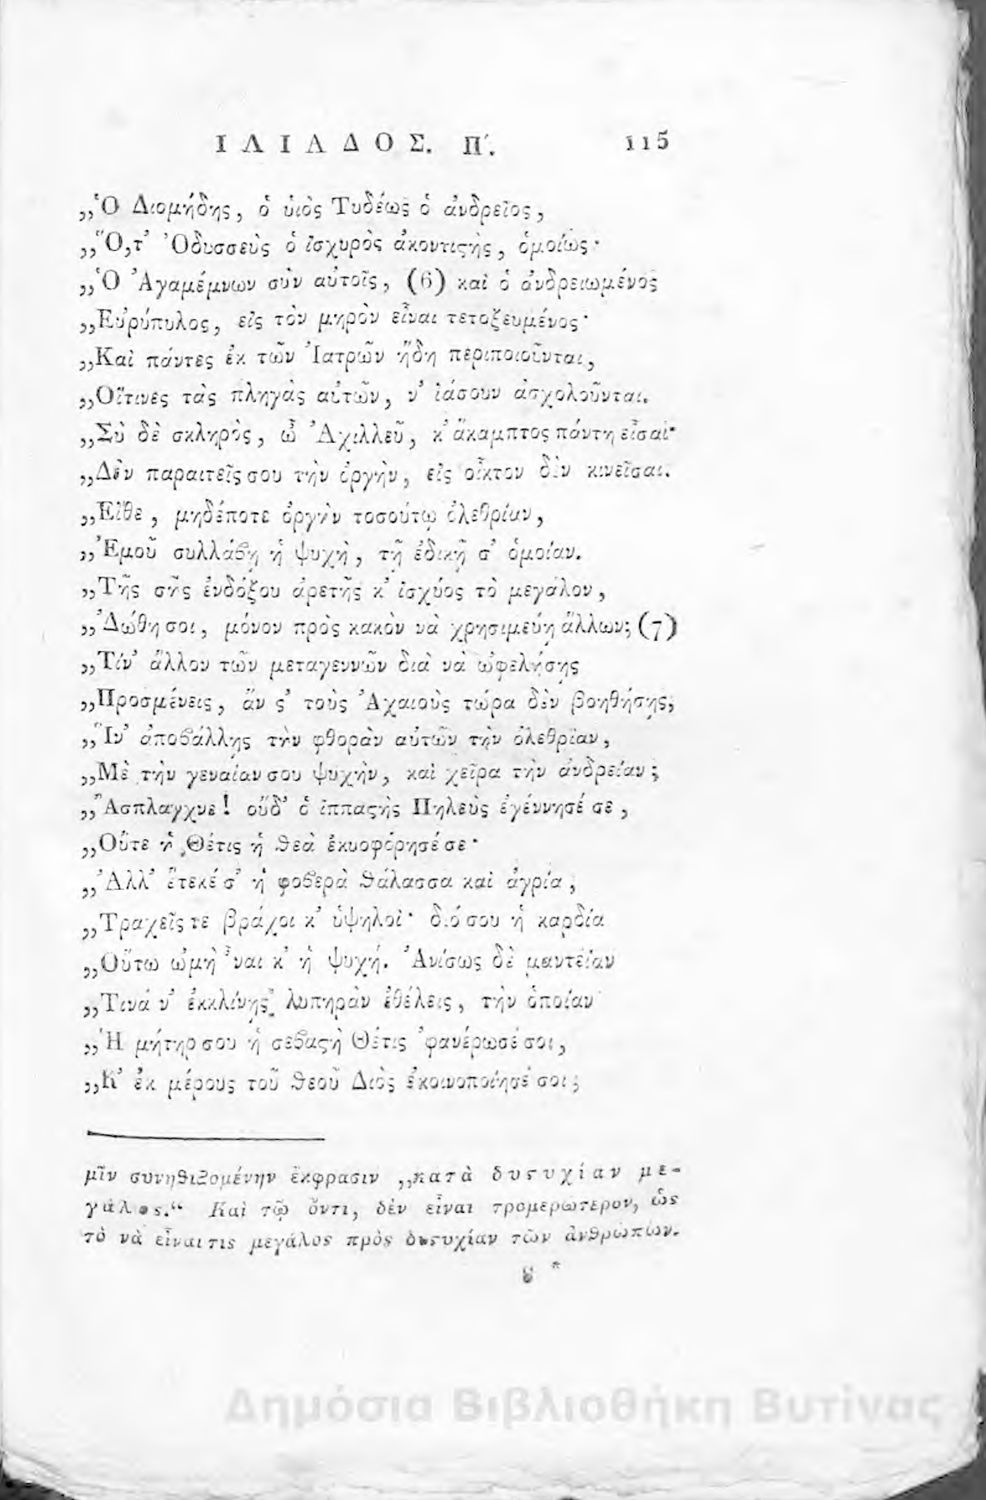 ΙΛΙΑΔΟΣ. Π΄. 115
„Ὁ Διομήδης, ὁ ὑιὸς Τυδέως ὁ ἀνδρεῖος,
„Ὅ,τ' Ὀδυσσεὺς ὁ ἰσχυρὸς ἀκοντιϛὴς, ὁμοίως·
„Ὁ Ἀγαμέμνων σὺν αὐτοῖς, (6) καὶ ὁ ἀνδρειωμένος
„Εὐρύπυλος, εἰς τὸν μηρὸν εἶναι τετοξευμένος·
„Καὶ πάντες ἐκ τῶν Ἰατρῶν ἤδη περιποιοῦνται,
„Οἵτινες τὰς πληγὰς αὐτῶν, ν' ἰάσουν ἀσχολοῦνται.
„Σὺ δὲ σκληρὸς, ὦ Ἀχιλλεῦ, κ' ἄκαμπτος πάντη εἶσαι·
„Δὲν παραιτεῖς σου τὴν ὀργὴν, εἰς οἶκτον δὲν κινεῖσαι.
„Εἴθε, μηδέποτε ὀργὴν τοσούτῳ ὀλεθρίαν,
„Ἐμοῦ συλλάϐῃ ἡ ψυχὴ, τῇ ἐδικῇ σ' ὁμοίαν.
„Τῆς σῆς ἐνδόξου ἀρετῆς κ' ἰσχύος τὸ μεγάλον,
„Δώθη σοι, μόνον πρὸς κακὸν νὰ χρησιμεύῃ ἄλλων; (7)
„Τίν' ἄλλον τῶν μεταγεννῶν διὰ νὰ ὠφελήσῃς
„Προσμένεις, ἂν ϛ' τοὺς Ἀχαιοὺς τώρα δὲν βοηθήσῃς,
„Ἵν' ἀποϐάλλῃς τὴν φθορὰν αὐτῶν τὴν ὀλεθρίαν,
„Μὲ τὴν γεναίαν σου ψυχὴν, καὶ χεῖρα τὴν ἀνδρείαν;
„Ἄσπλαγχνε! οὔδ' ὁ ἱππαϛὴς Πηλεὺς ἐγέννησέ σε,
„Οὔτε ἡ Θέτις ἡ ϑεὰ ἐκυοφόρησέ σε·
„Ἀλλ' ἔτεκέ σ' ἡ φοϐερὰ ϑάλασσα καὶ ἀγρία,
„Τραχεῖς τε βράχοι κ' ὑψηλοὶ· διό σου ἡ καρδία
„Οὕτω ὠμὴ 'ναι κ' ἡ ψυχή. Ἀνίσως δὲ μαντείαν
„Τινὰ ν' ἐκκλίνῃς λυπηρὰν ἐθέλεις, τὴν ὁποίαν
„Ἡ μήτηρ σου ἡ σεϐαϛὴ Θέτις 'φανέρωσέ σοι,
„Κ' ἐκ μέρους τοῦ ϑεοῦ Διὸς ἐκοινοποίησέ σοι;
μῖν συνηϑιζομένην ἔκφρασιν „κατὰ δυϛυχίαν με-
γάλος." Καὶ τῷ ὄντι, δὲν εἶναι τρομερώτερον, ὡς
τὸ νὰ εἶναι τις μεγάλος πρὸς δυϛυχίαν τῶν ἀνϑρώπων.
8 *
Δημόσια Βιβλιοθήκη Βυτίνας